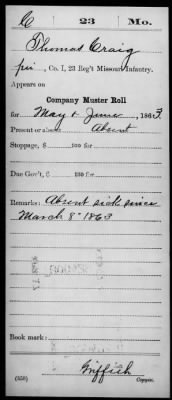 C 23 Mo.
Thomas Craig
pri, Co. I, 23 Reg't Missouri Infantry.
Appears on
Company Muster Roll
for May & June, 1863
Present or absent Absent
Stoppage, $ 100 for
Due Gov't, $ 100 for
Remarks: Absent sick since
March 8" 1863
Book mark:
Griffith
(358) Copyist.